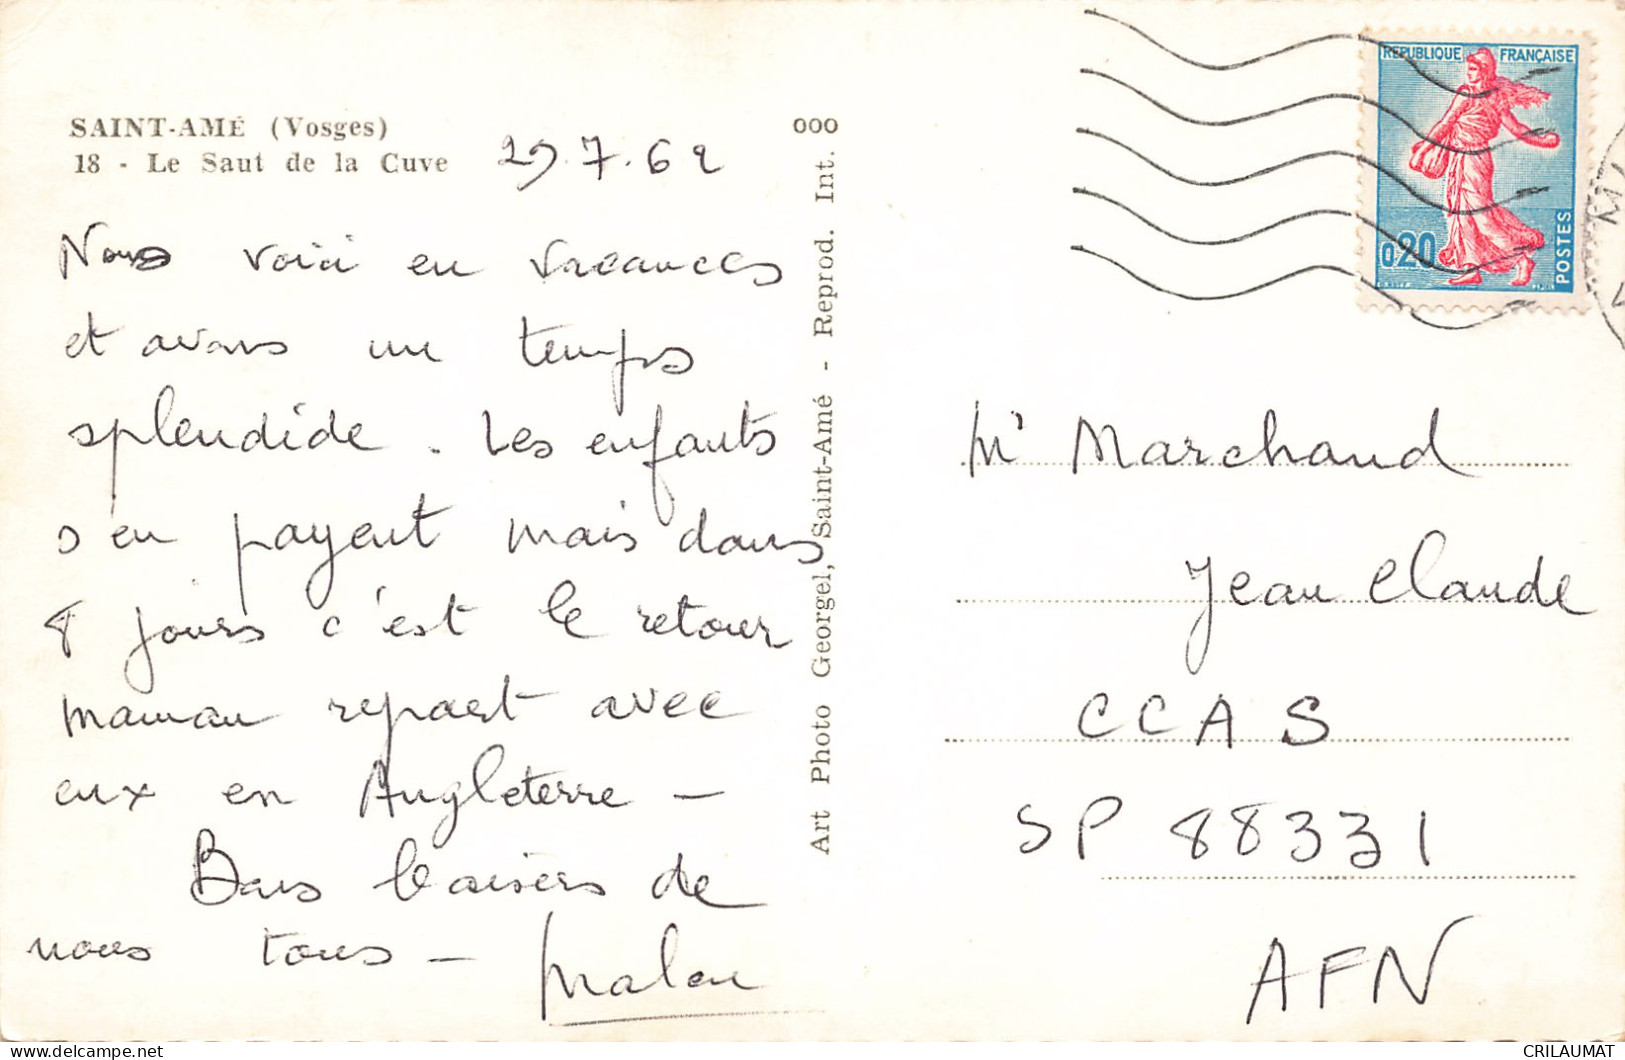 SAINT-AMÉ (Vosges)
18 - Le Saut de la Cuve
29.7.62
Nous voici en vacances
et avons un temps
splendide. Les enfants
s'en payent mais dans
8 jours c'est le retour
maman repart avec
eux en Angleterre -
Bons baisers de
nous tous -
Malou
000
Art Photo Georgel, Saint-Amé - Reprod. Int.
REPUBLIQUE FRANÇAISE
0,20
POSTES
Mr Marchand
Jean Claude
CCAS
SP 88331
AFN
CRILAUMAT